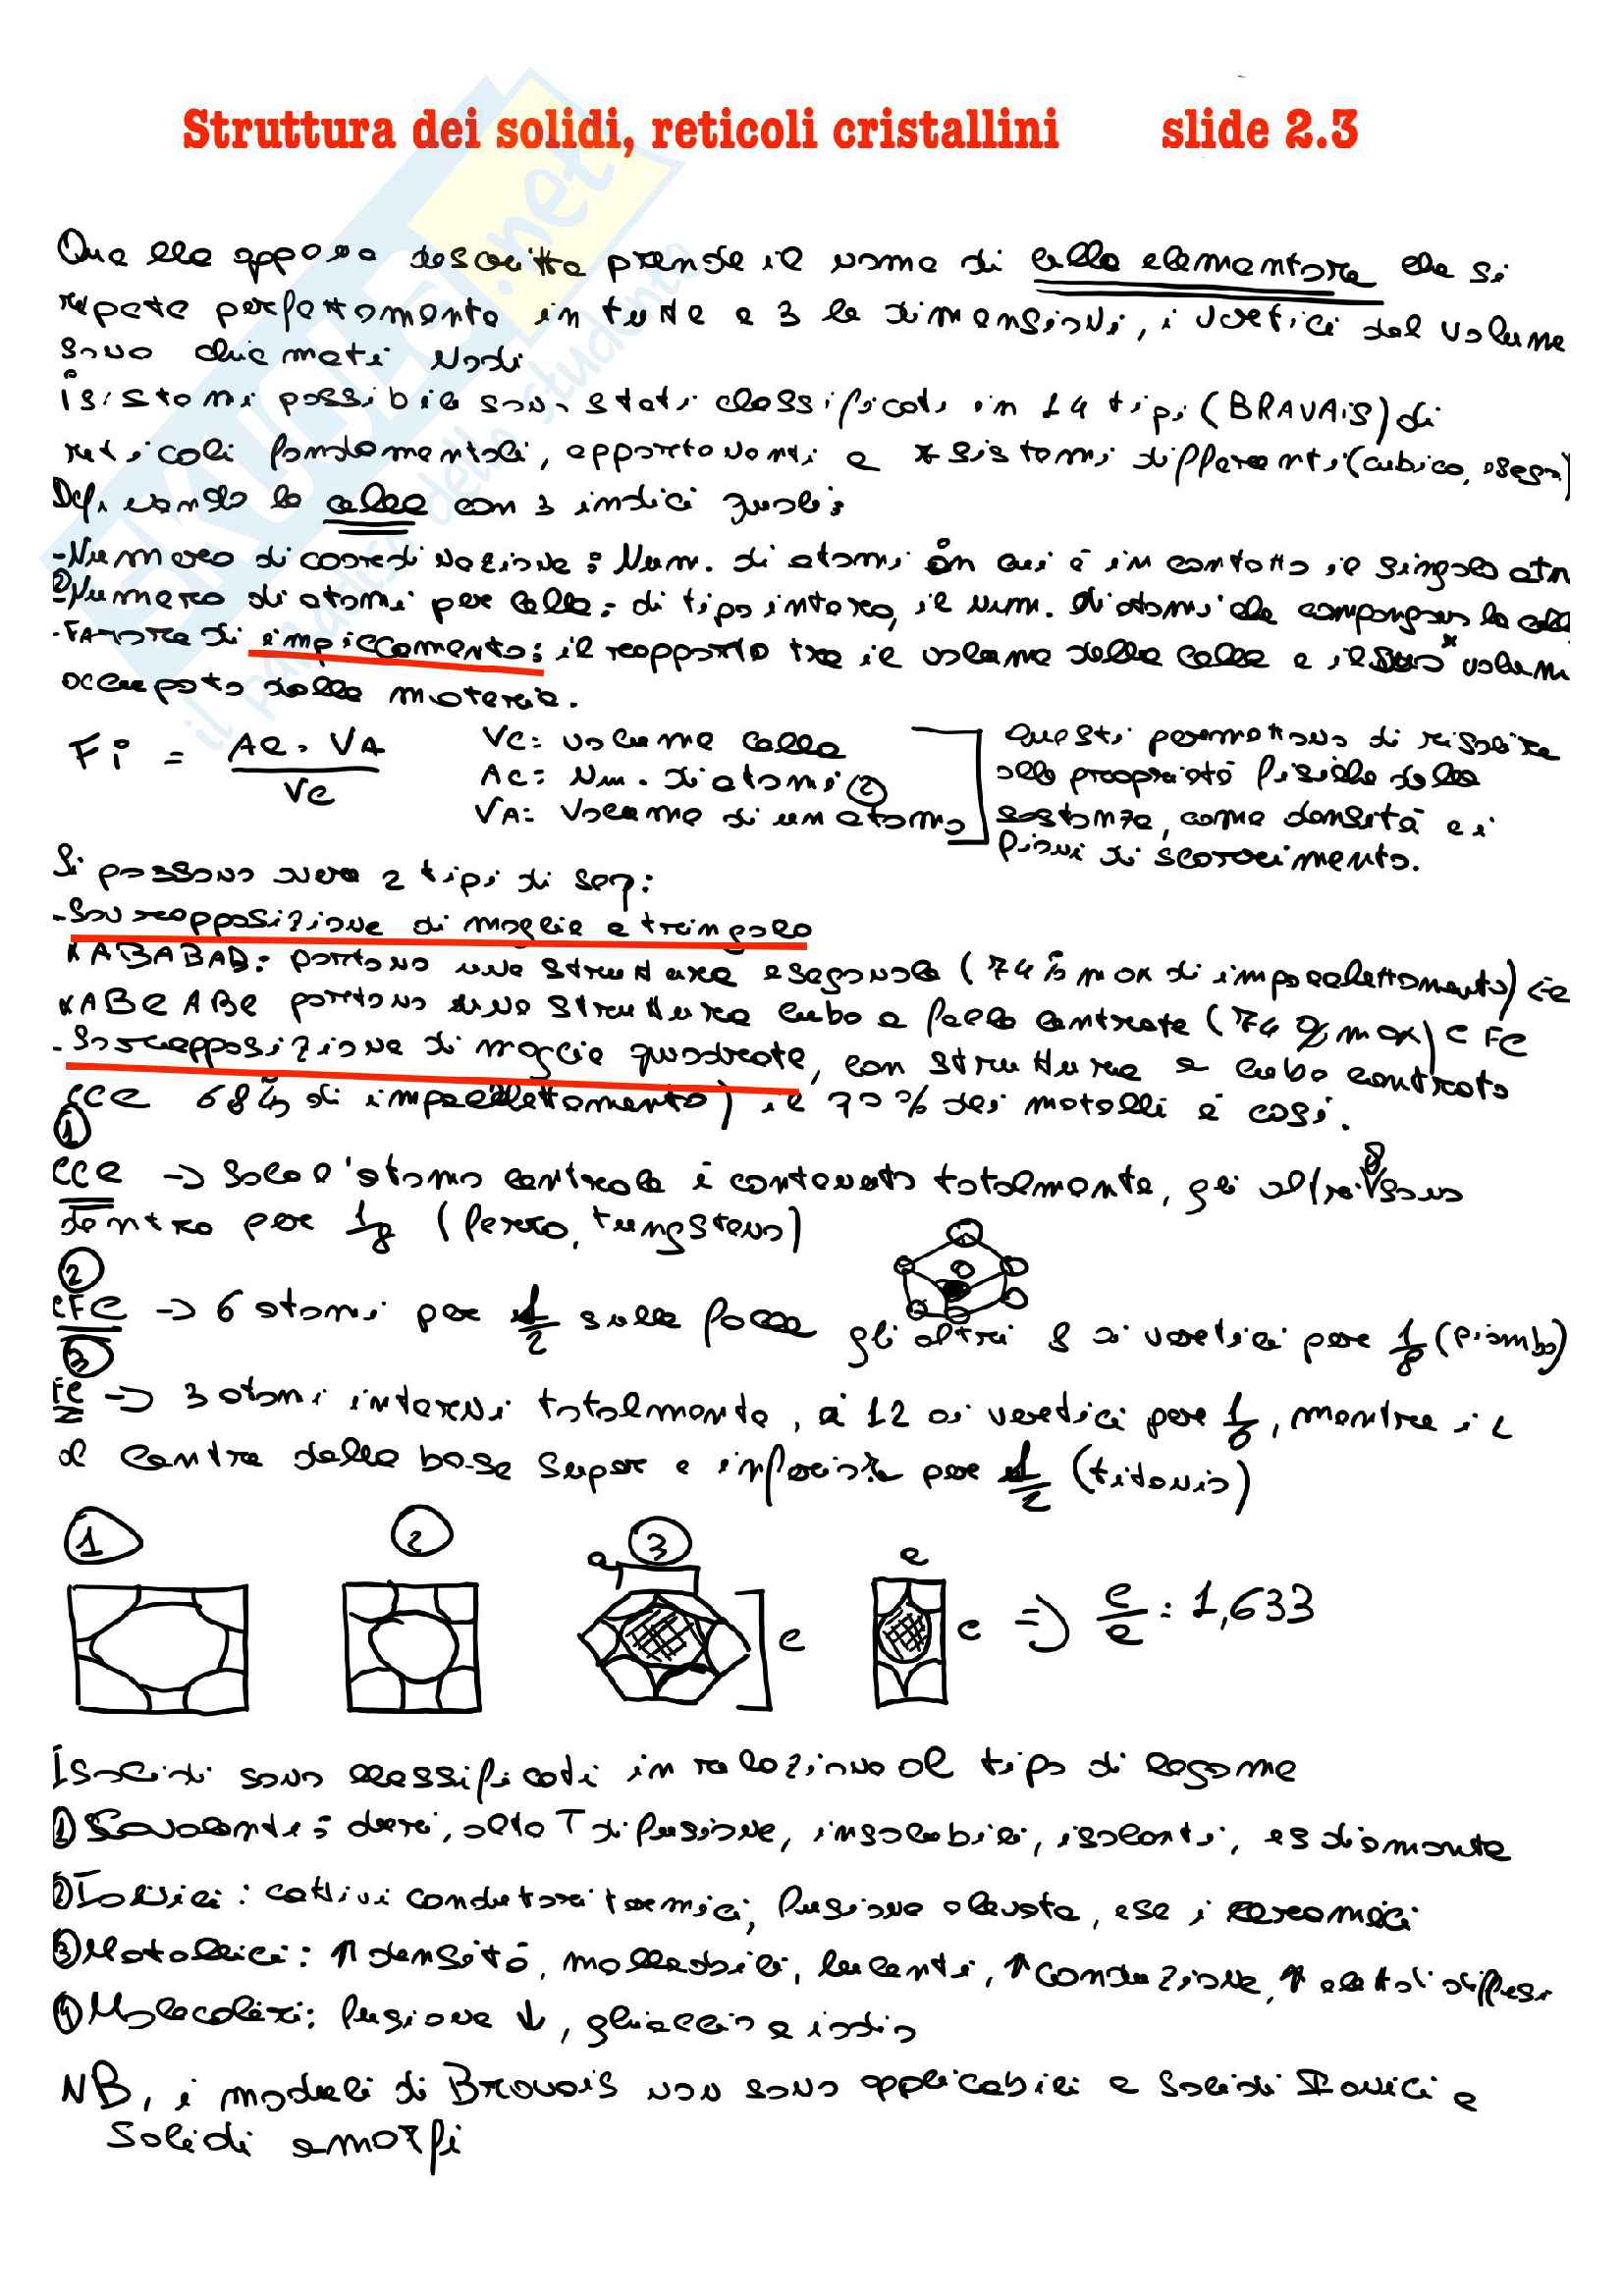 Struttura dei solidi, reticoli cristallini slide 2.3
Quella appena descritta prende il nome di cella elementare che si
ripete perfettamente in tutte e 3 le dimensioni, i vertici del volume
sono chiamati Nodi
i sistemi possibili sono stati classificati in 14 tipi (BRAVAIS) di
reticoli fondamentali, appartenenti a 7 sistemi differenti (cubico, esag)
Definendo la cella con 3 indici quali:
-Numero di coordinazione: Num. di atomi in cui è in contatto il singolo atm
2 Numero di atomi per cella: di tipo intero, il num. di atomi che compongono la cella
-FAttore di impiccamento: il rapporto tra il volume della cella e il volum
occupato dalla materia.
Fi = Ac . VA / Vc
Vc: volume cella
Ac: Num. di atomi 2
VA: Volume di un atomo
Questi permettono di risalire
alle proprietà fisiche della
sostanza, come densità e i
piani di scorrimento.
Si possono avere 2 tipi di seq:
-Sovrapposizione di maglie a triangolo
x ABABAB: portano una struttura esagonale (74% max di impacchettamento)
x ABC ABC portano una struttura cubo a facce centrate (74% max) CFC
-Sovrapposizione di maglie quadrate, con struttura a cubo centrato
CCC 68% di impacchettamento) il 70% dei metalli è così.
1
CCC -> Solo l'atomo centrale è contenuto totalmente, gli altri 8 sono
dentro per 1/8 (ferro, tungsteno)
2
CFC -> 6 atomi per 1/2 sulle facce gli altri 8 ai vertici per 1/8 (piombo)
3
-> 3 atomi interni totalmente, i 12 ai vertici per 1/6, mentre i 2
al centro della base super e inferiore per 1/2 (titanio)
1 2 3
a a
c c => c/a = 1,633
I solidi sono classificati in relazione al tipo di legame
1) Covalenti: duri, alto T di fusione, insolubili, isolanti, es diamante
2) Ionici: cattivi conduttori termici, fusione elevata, ese i ceramici
3) Metallici: ↑ densità, malleabili, lucenti, ↑ conduzione, ↑ elett diffusi
4) Molecolari: fusione ↓, ghiaccio e iodio
NB, i modelli di Bravais non sono applicabili a solidi Ionici e
solidi amorfi
SKUOLA.net
il paradiso dello studente